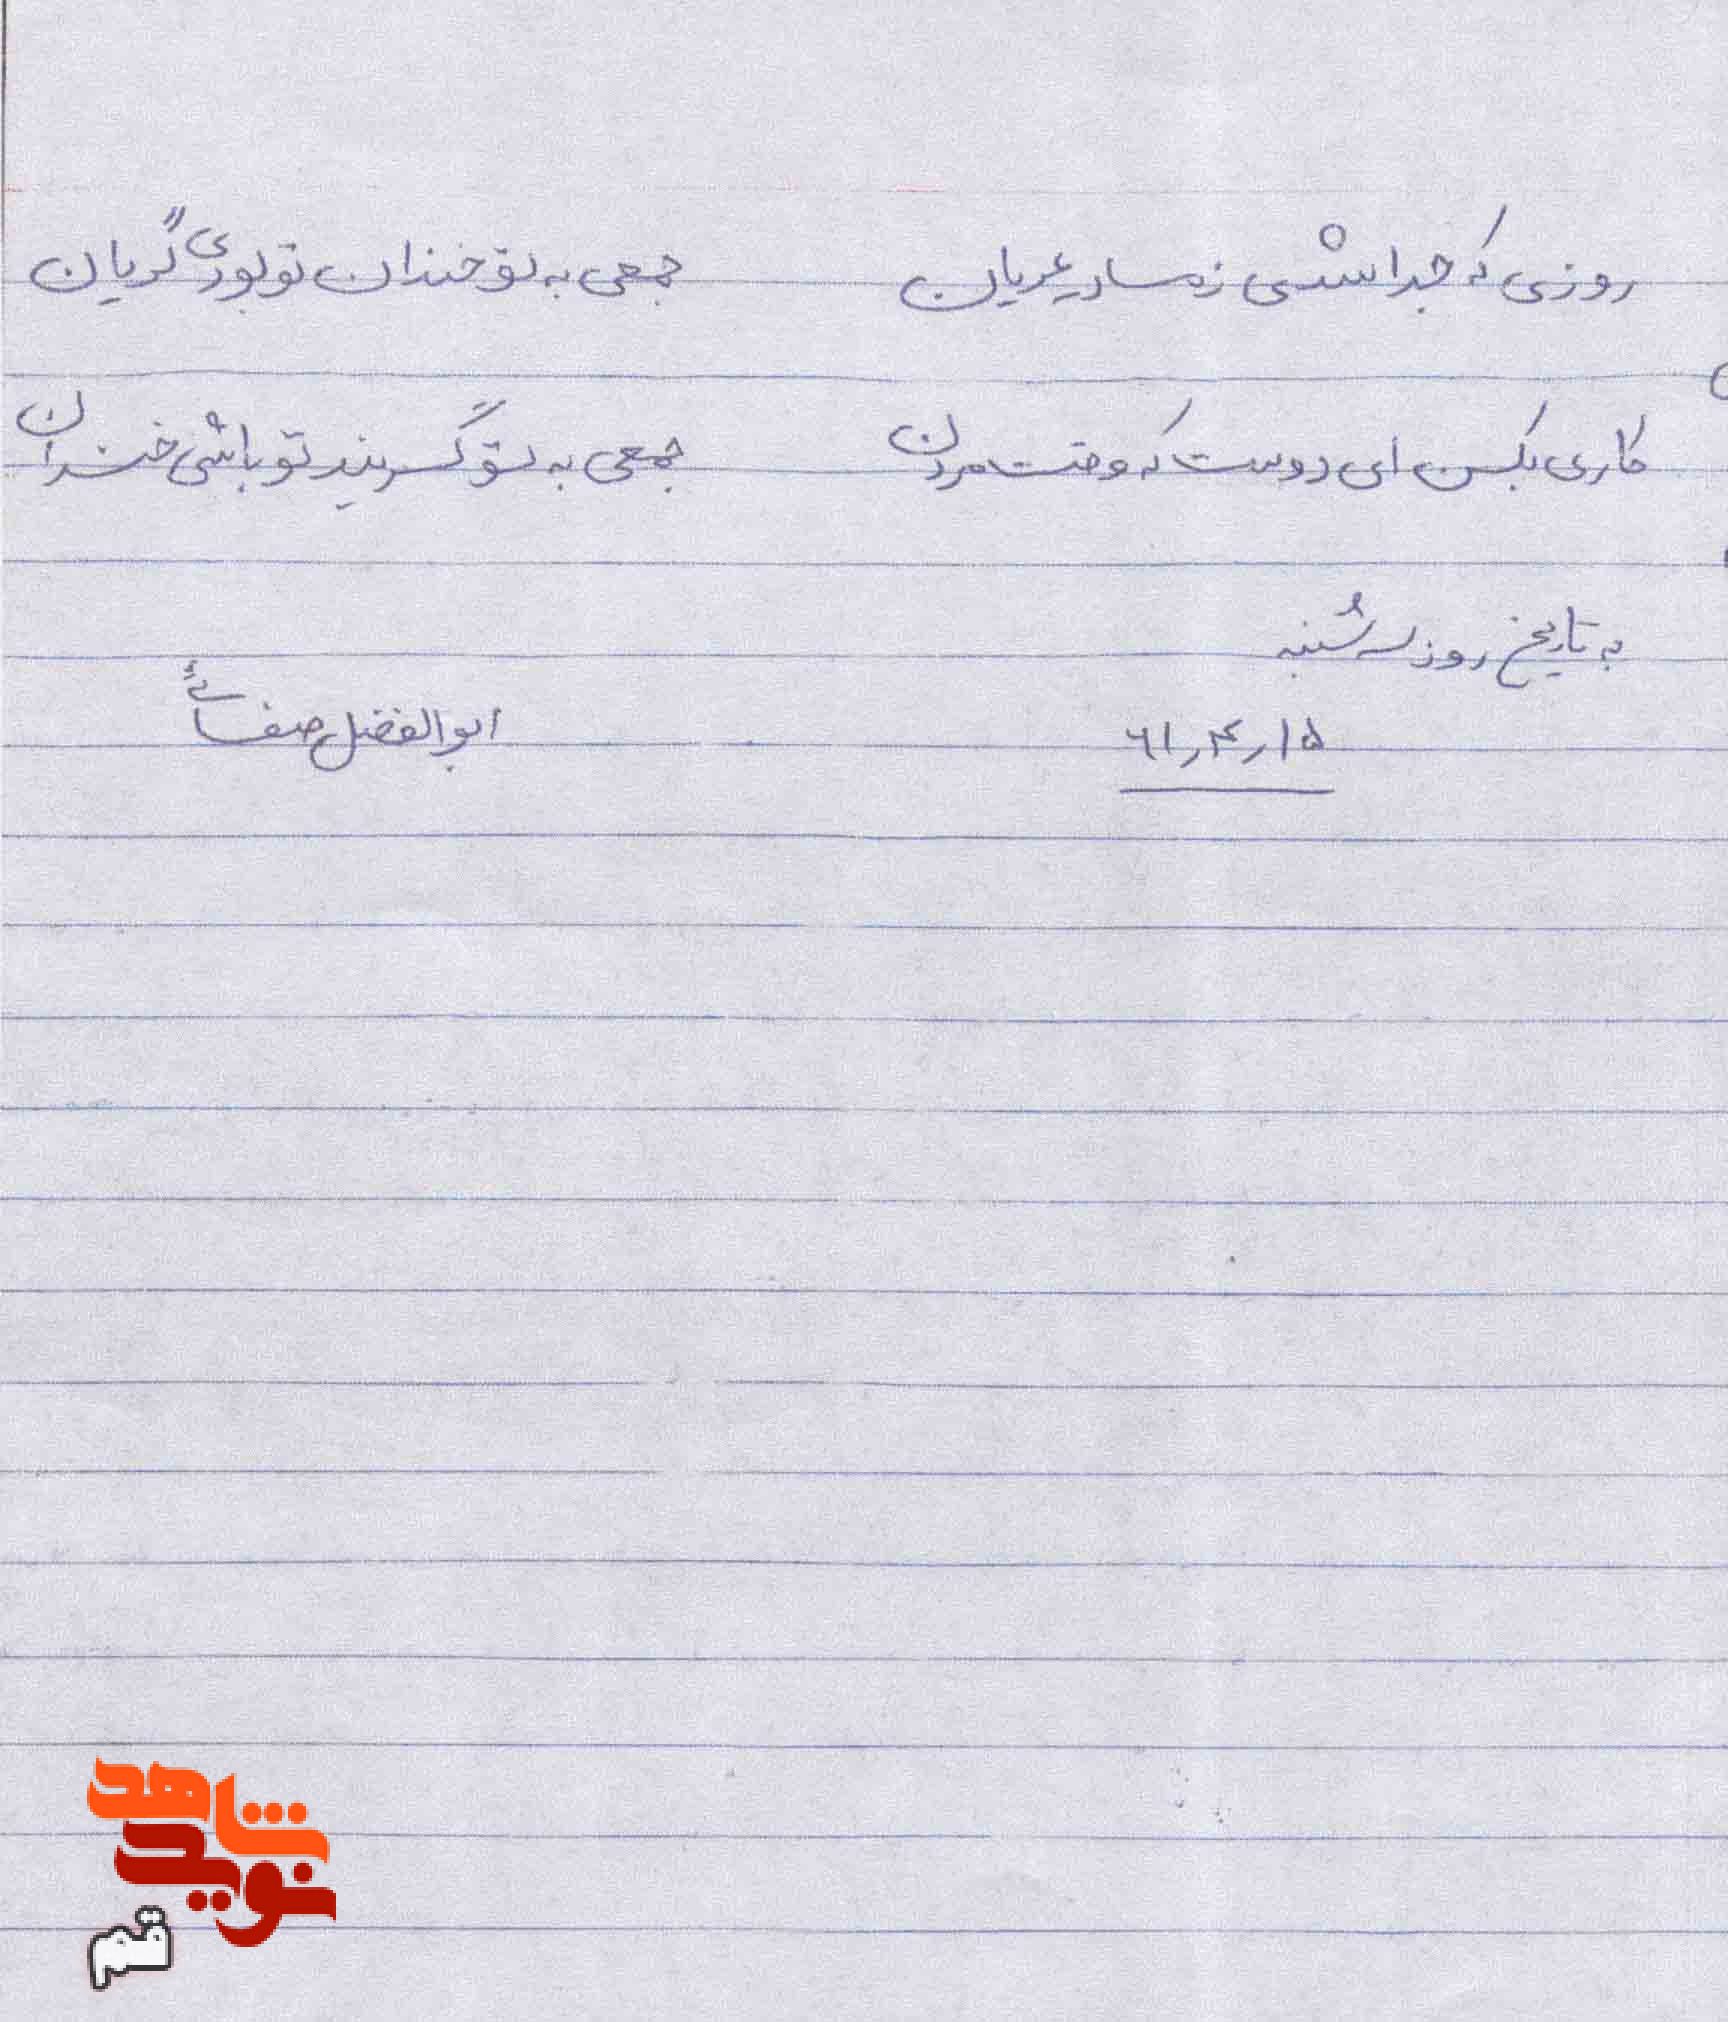 روزی که جدا شدی ز مادر عریان جمعی به تو خندان تو بودی گریان
کاری بکن ای دوست که وقت مردن جمعی به تو گریند تو باشی خندان
به تاریخ روز سه شنبه
۱۵ر۴ر۶۱
ابوالفضل صفائی
نوید شاهد
قم